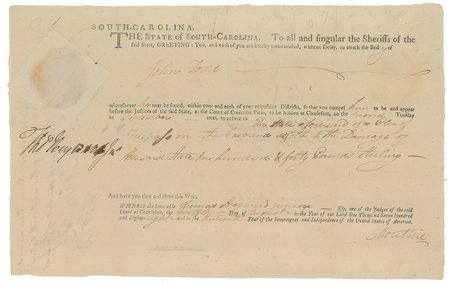 SOUTH-CAROLINA.
THE STATE of SOUTH-CAROLINA. To all and singular the Sheriffs of the
said State, GREETING: You, and each of you are hereby commanded, without Delay, to attach the Body of
John
wheresoever he may be found, within your and each of your respective Districts, so that you compel him to be and appear
before the Justices of the said State, at the Court of Common Pleas, to be holden at Charleston, on the Tuesday
next, to answer to The State aforesaid of a Plea of
Trespass on the Case and to the Damage of
the said State one hundred & forty Pounds Sterling
And have you then and there this Writ.
WITNESS the honorable Thomas Heyward junior Esq; one of the Judges of the said
Court at Charleston, the Day of August in the Year of our Lord One Thousand Seven Hundred
and Eighty-eight and in the Year of the Sovereignty and Independence of the United States of America.
Moultrie